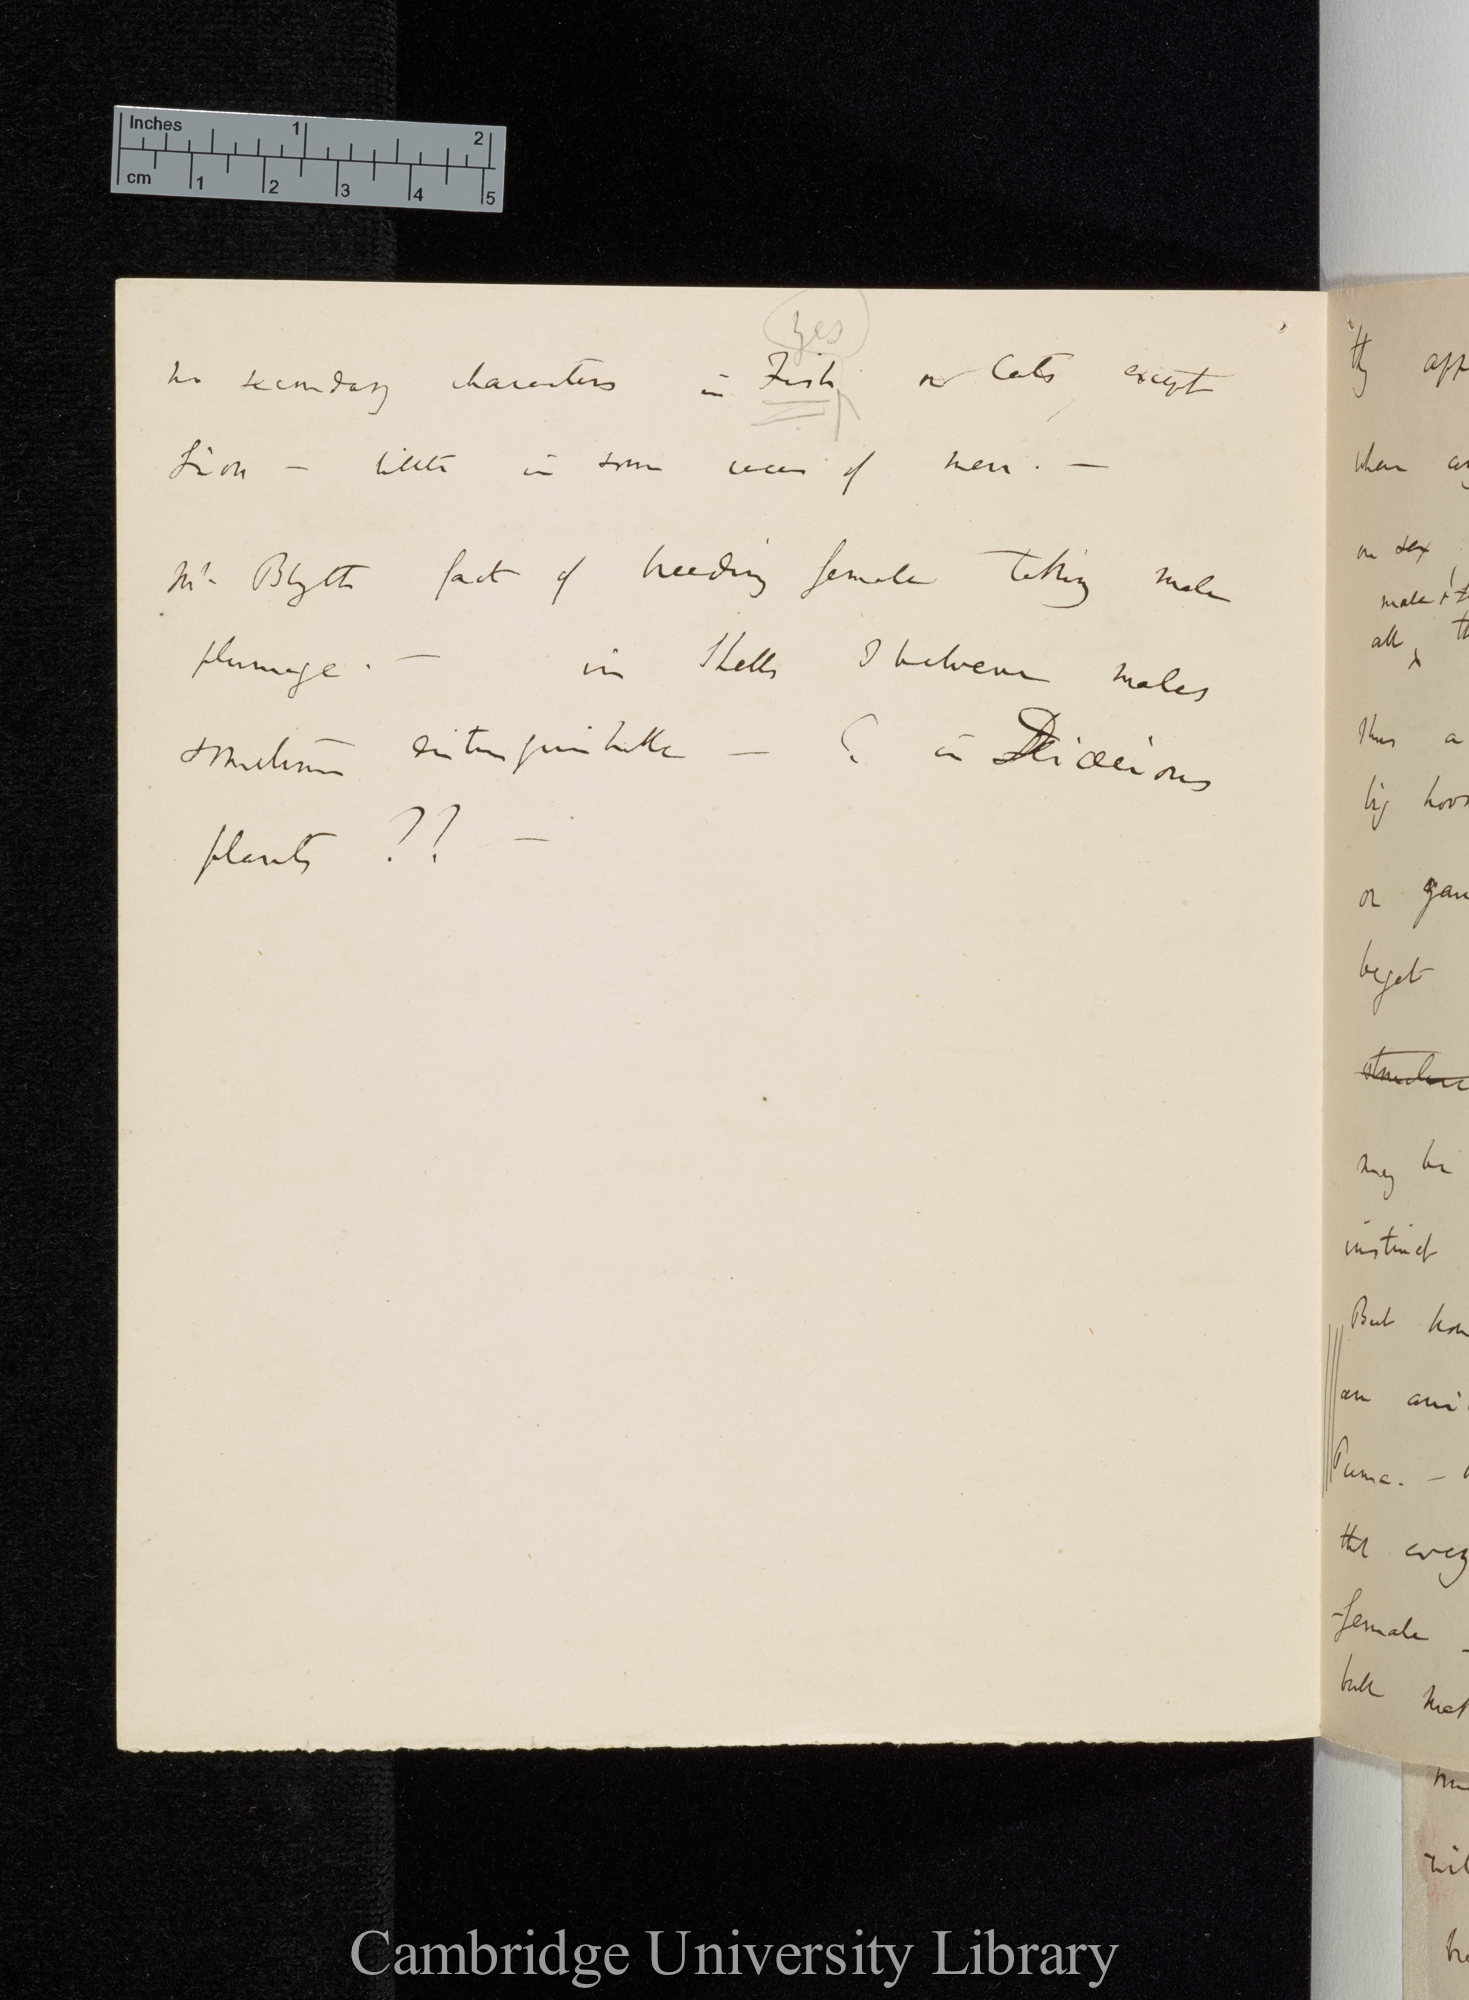 Inches 1 2
cm 1 2 3 4 5
yes
no secondary characters in Fish or Cats, except
Lion — little in some races of men. —
Mr Blyth fact of breeding female taking male
plumage. — in Shells I believe males
sometimes distinguishable — ? in Diœcious
plants ?? —
they app
when
on sex
male
all
thus a
big
or
beget
may be
instinct
But how
an ani
Puma. —
that every
female
but
Cambridge University Library